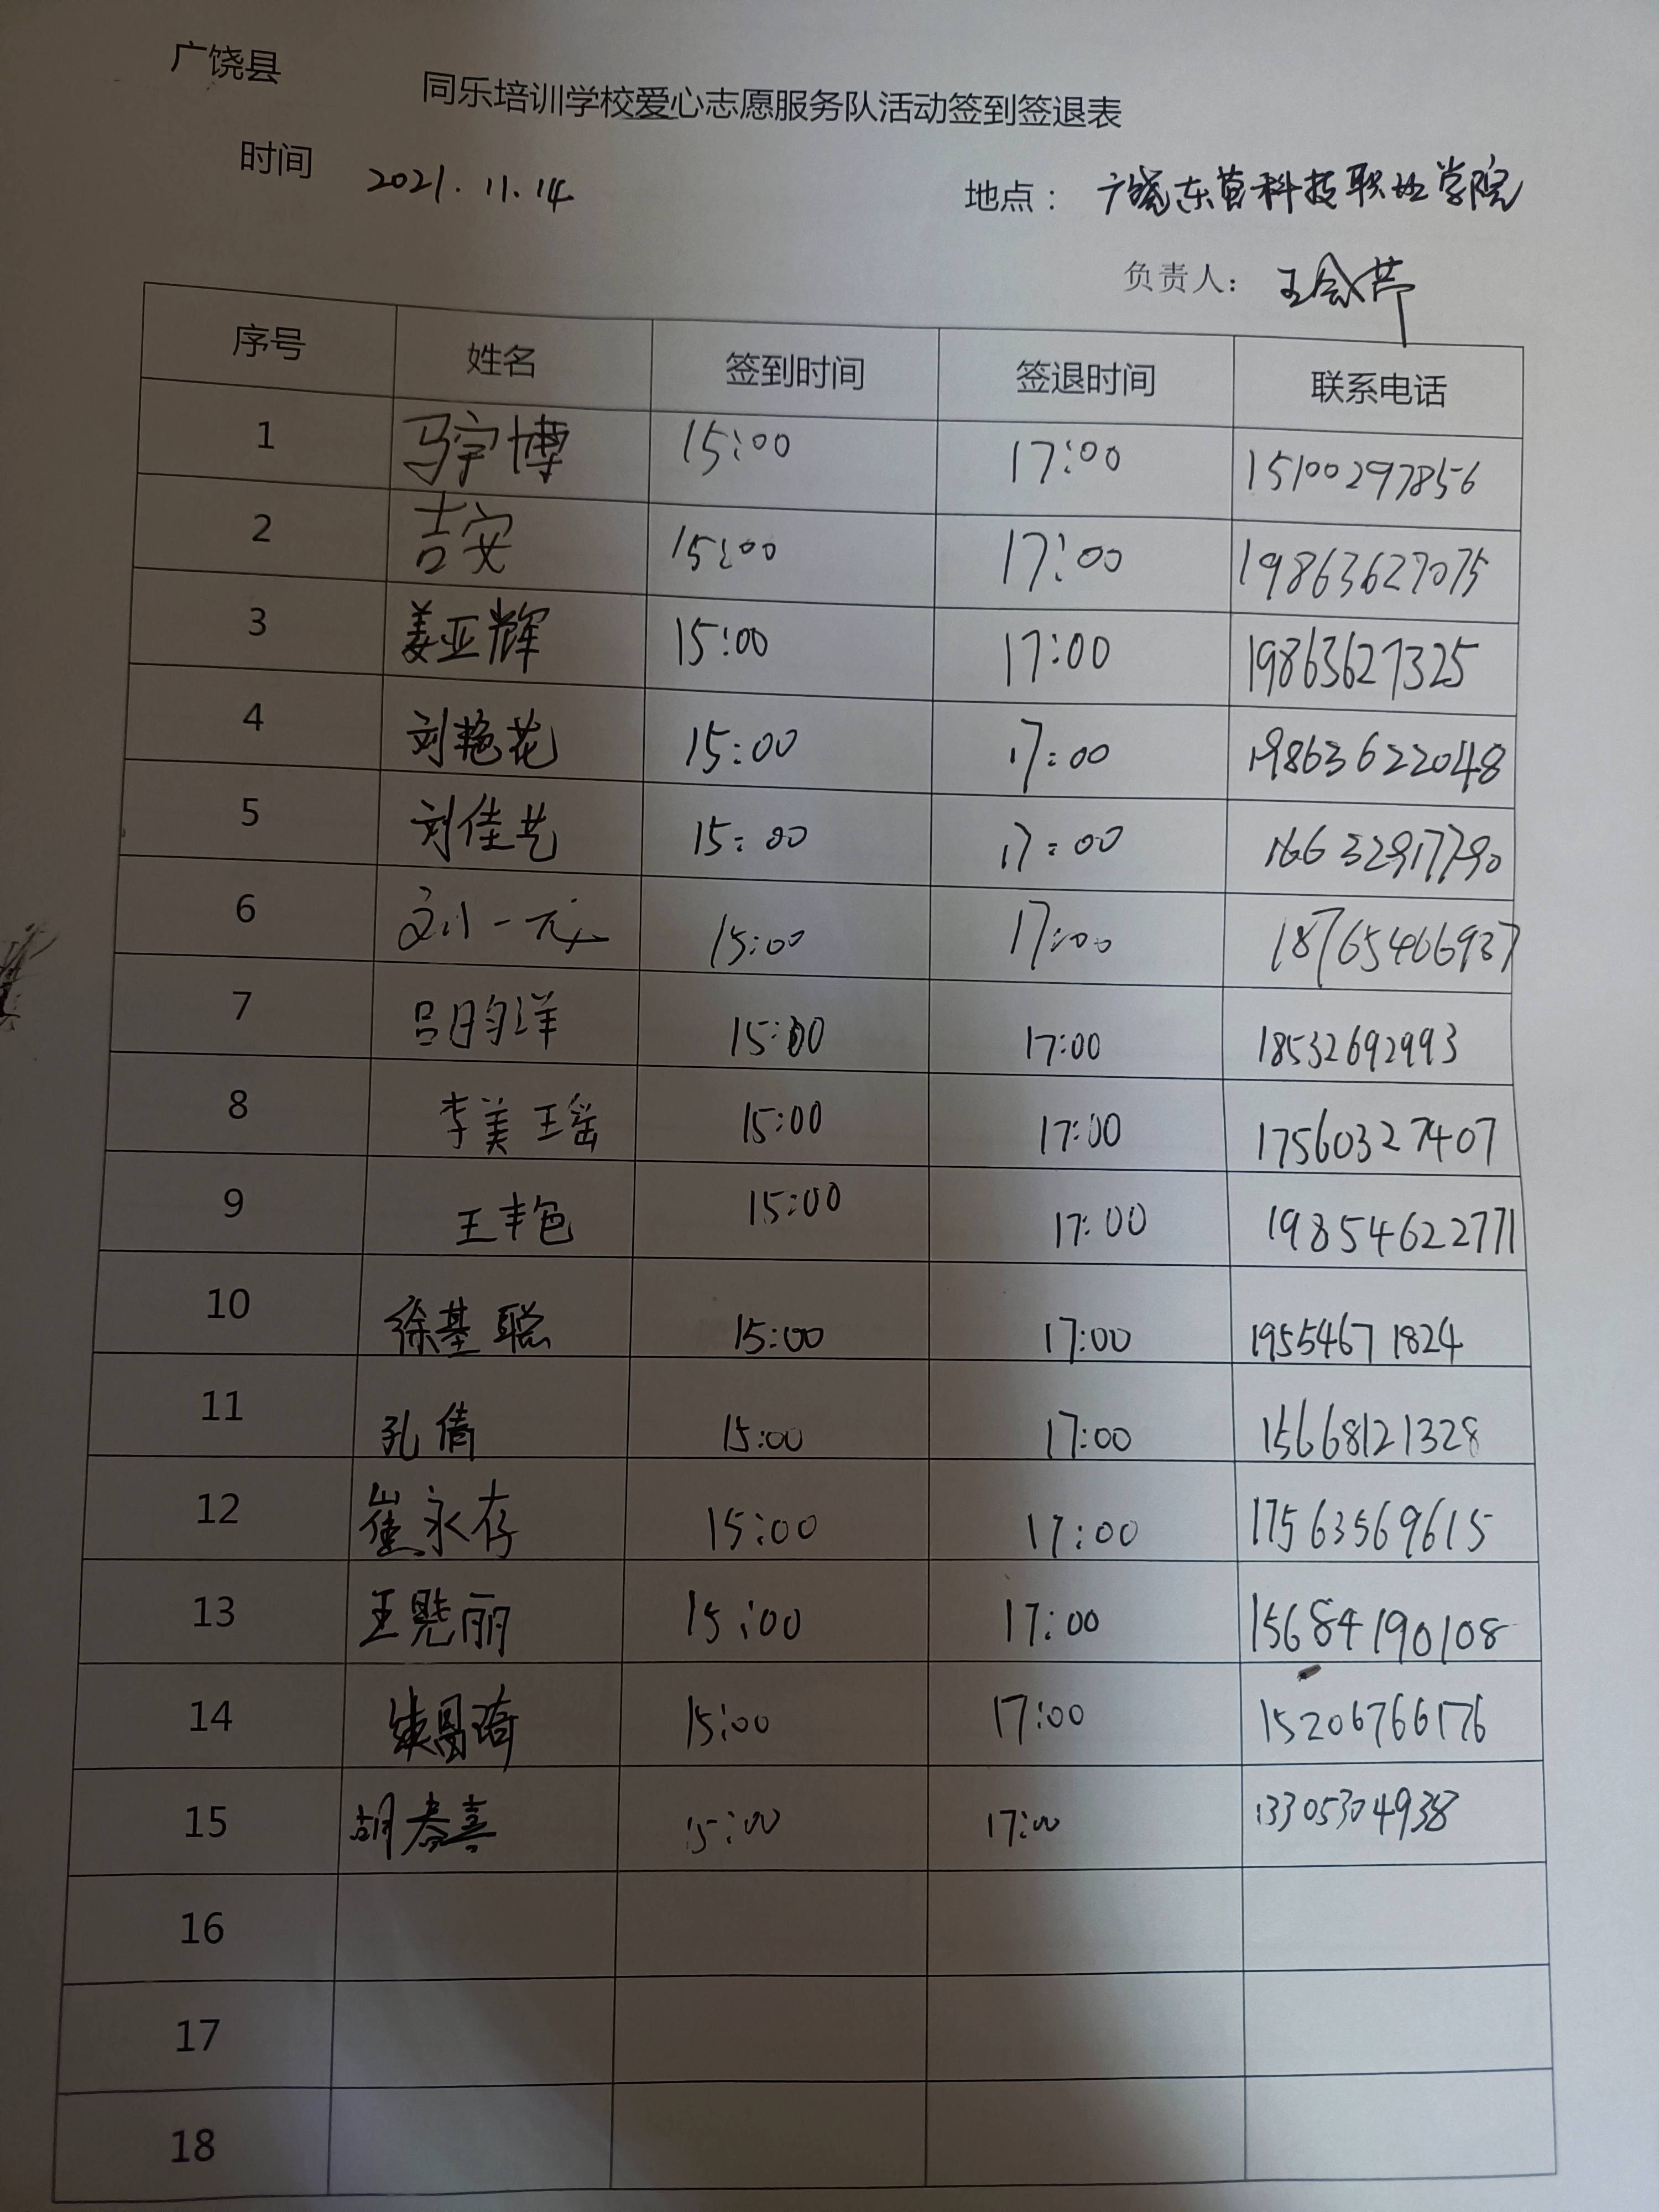 广饶县
同乐培训学校爱心志愿服务队活动签到签退表
时间 2021.11.14 地点： 广饶东营科技职业学院
负责人： 王会芹
序号 姓名 签到时间 签退时间 联系电话
1 马宇博 15:00 17:00 15100297856
2 吉安 15:00 17:00 19863627075
3 姜亚辉 15:00 17:00 19863627325
4 刘艳花 15:00 17:00 19863622048
5 刘佳艺 15:00 17:00 16632917790
6 刘一 15:00 17:00 18765466937
7 吕昀洋 15:00 17:00 18532692993
8 李美瑶 15:00 17:00 17560327407
9 王艳 15:00 17:00 19854622771
10 徐基聪 15:00 17:00 19554671824
11 孔倩 15:00 17:00 15668121328
12 崔永存 15:00 17:00 17563569615
13 王晓丽 15:00 17:00 15684190108
14 15:00 17:00 15206766176
15 胡春喜 15:00 17:00 13305304938
16
17
18